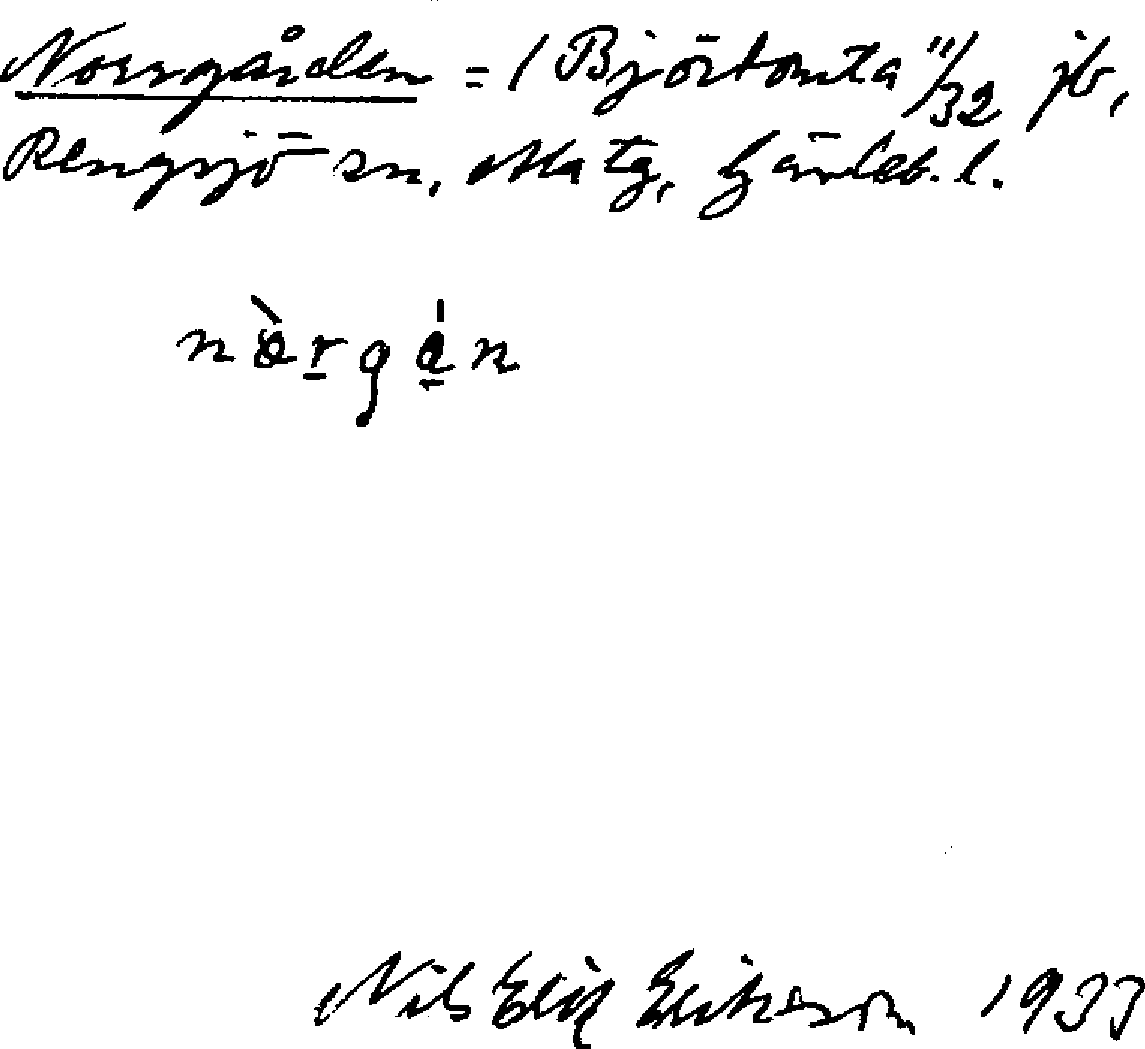 Norrgården = 1 Björtomta 11/32 jb,
Rengsjö sn, Ala tg, Gävleb. l.
nàrgạ́n
Nils Erik Erikeson 1933